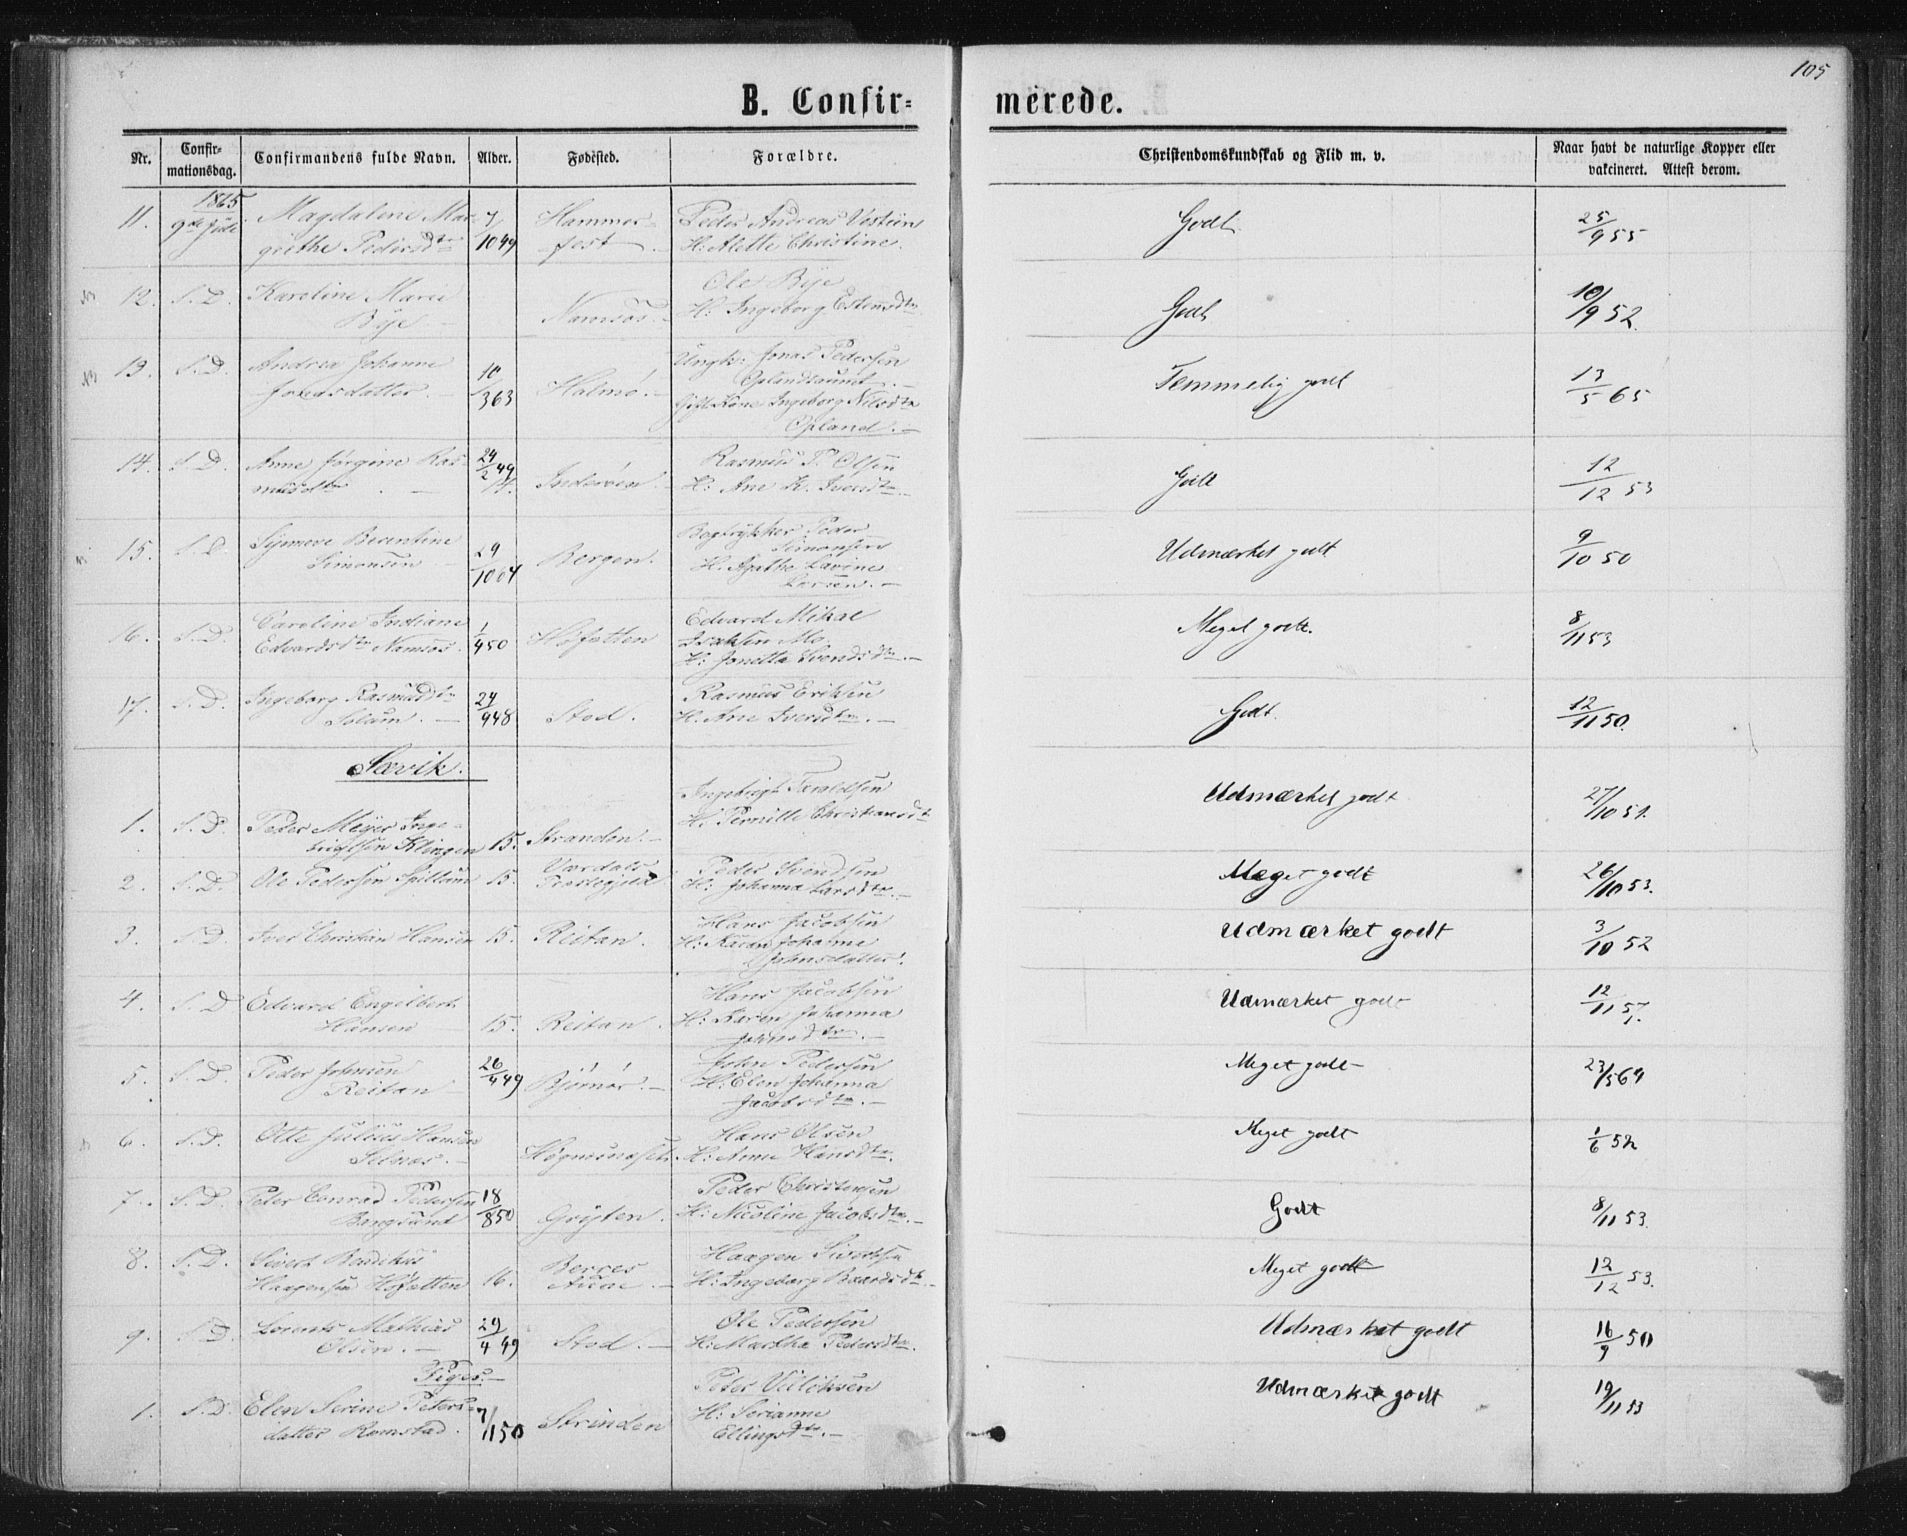 105
B. Confir- merede.
Nr. Confirmationsdag. Confirmandens fulde Navn. Alder. Fødested. Forældre. Christendomskundskab og Flid m. v. Naar havt de naturlige Kopper eller vakcineret. Attest derom.
1865
11. Magdalene Mar- 7/10 49 Hammer- Peder Andreas Godt 25/9 55
grethe Pedersdtr fest H: Alette Christine.
12. S.D. Karoline Marie Ole Bye Godt 10/9 52.
Bye Namsos. H: Ingeborg Estensdtr
13. S.D. Andrea Johanne 10/3 63 Halmø. Ungk: Jonas Pedersen Temmelig godt 13/5 65
Jonasdatter. Oplandsaunet.
Gift Kone Ingeborg Nilsdtr
Opland.
14. S.D. Anne Jørgine Ras- 24/2 49 Inderøen. Rasmus P. Olsen Godt 12/12 53
musdtr H: Ane K. Svendtr
15. S.D. Synneve Berentine 29/10 Bergen. Bogtrykker Peder Udmærket godt 9/10 50
Simonsen Simonsen
H: Agathe Lavine
16. S.D. Caroline Indiane 1/4 50 Høfatten Edvard Mikal Meget godt. 8/11 53
Edvardsdtr Namsos. Mo.
H: Jonetta Svendsdtr
17. S.D. Ingeborg Rasmusdtr 24/9 48 Stod. Rasmus Eriksen Godt. 12/11 50.
Solum. H: Ane Iversdtr.
Sævik.
Ingebrigt Taraldsen Udmærket godt 27/10 51.
1. S.D. Peder Meyer Inge- H: Pernille Christiansdtr
brigtsen Klingen 15. Stranden.
2. S.D. Ole Pedersen Spillum 15. Værdals Peder Svendsen Meget godt 26/10 53.
Præstegjeld H: Johanna Larsdtr
3. S.D. Iver Christian Hansen 15. Reitan. Hans Jacobsen Udmærket godt 3/10 52
H: Karen Johanna
Johnsdatter.
4. S.D Edvard Engelbert Hans Jacobsen Udmærket godt 12/11 51.
Hansen 15. Reitan. H: Karen Johanna
Johnsdtr.
5. S.D. Peder Johnsen 26/4 49 Bjørnør. John Pedersen Meget godt 23/5 64
Reitan H: Elen Johanna
Jacobsdtr.
6. S.D. Otte Julius Hansen Hans Olsen Meget godt 1/6 52
Selnæs. H: Anne Hansdtr.
7. S.D. Peter Conrad Pedersen 18/8 50 Gryten. Peder Christensen Godt 8/11 53.
Bangsund H: Nicoline Jacobsdtr.
8. S.D. Sivert Bendikus Haagen Sivertsen Meget godt 12/12 53.
Haagensen Høfatten 16. H: Ingeborg Baardsdtr.
9. S.D. Lorents Mathias 29/4 49 Stod. Ole Pedersen Udmærket godt 16/9 50
Olsen. H: Martha Pedersdtr.
Piger.
1. S.D. Elen Serine Peters- 7/1 50 Strinden Peter Udmærket godt 19/11 53
datter Romstad. H: Serianne
Ellingsdtr.